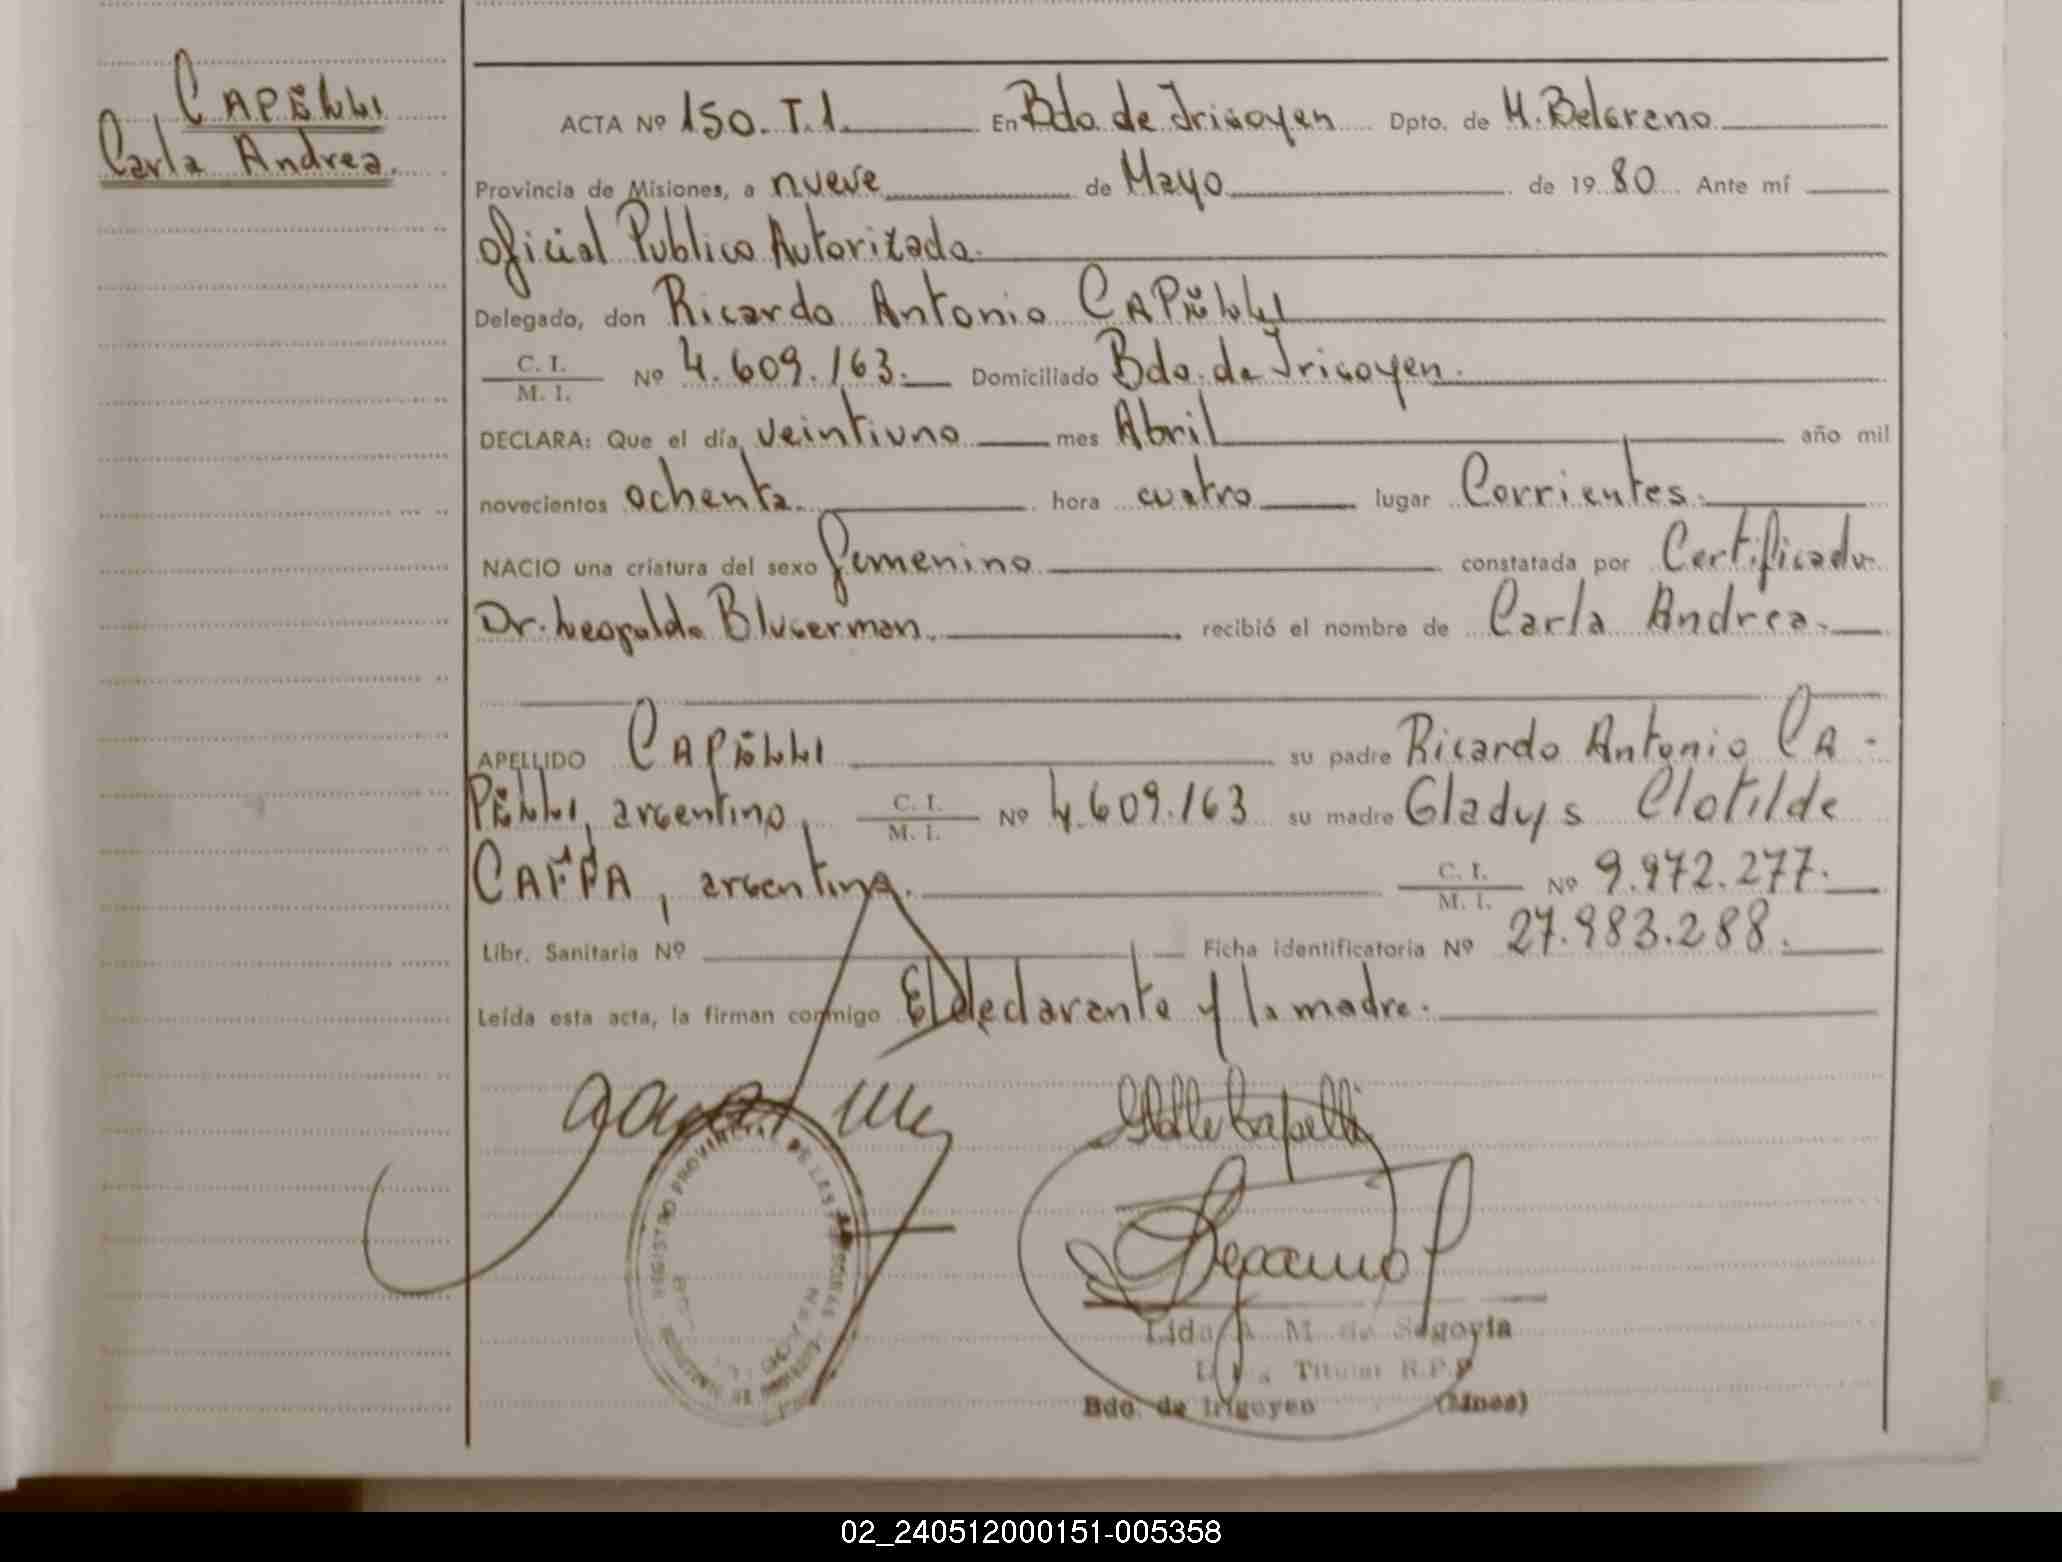 CAPELLI
Carla Andrea.
ACTA Nº 150. T.1. En Bdo. de Irigoyen Dpto. de M. Belgrano
Provincia de Misiones, a nueve de Mayo de 1980 Ante mí
Oficial Publico Autorizado.
Delegado, don Ricardo Antonio CAPELLI
C. I.
M. I. Nº 4.609.163. Domiciliado Bdo. de Irigoyen.
DECLARA: Que el día veintiuno mes Abril año mil
novecientos ochenta. hora cuatro lugar Corrientes.
NACIO una criatura del sexo femenino constatada por Certificado
Dr. Leopoldo Blugerman. recibió el nombre de Carla Andrea.
APELLIDO CAPELLI su padre Ricardo Antonio CA-
PELLI, argentino, C. I. M. I. Nº 4.609.163 su madre Gladys Clotilde
argentina. C. I. M. I. Nº 9.972.277.
Libr. Sanitaria Nº Ficha identificatoria Nº 27.983.288.
Leída esta acta, la firman conmigo El declarante y la madre.
Capelli
REGISTRO PROVINCIAL DE LAS PERSONAS
M. de Segovia
Titular R.P.P
Bdo. de Irigoyen (Mnes)
02_240512000151-005358